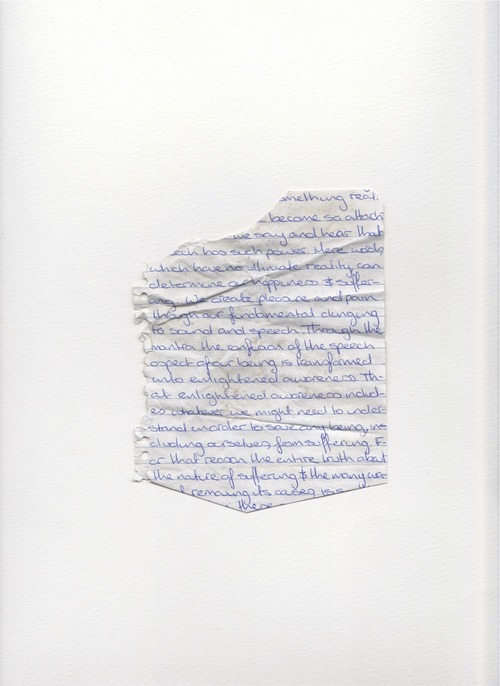 something real.
become so attach
we say and hear that
ech has such power. Mere words
which have no ultimate reality, can
determine our happiness & suffer-
ing. We create pleasure and pain
through our fundamental clinging
to sound and speech. Through the
mantra the confusion of the speech
aspect of our being is transformed
into enlightened awareness. Th-
at enlightened awareness includ-
es whatever we might need to under-
stand in order to save any being, inc
cluding ourselves, from suffering. F-
or that reason the entire truth about
the nature of suffering & the many
removing its causes, is
these